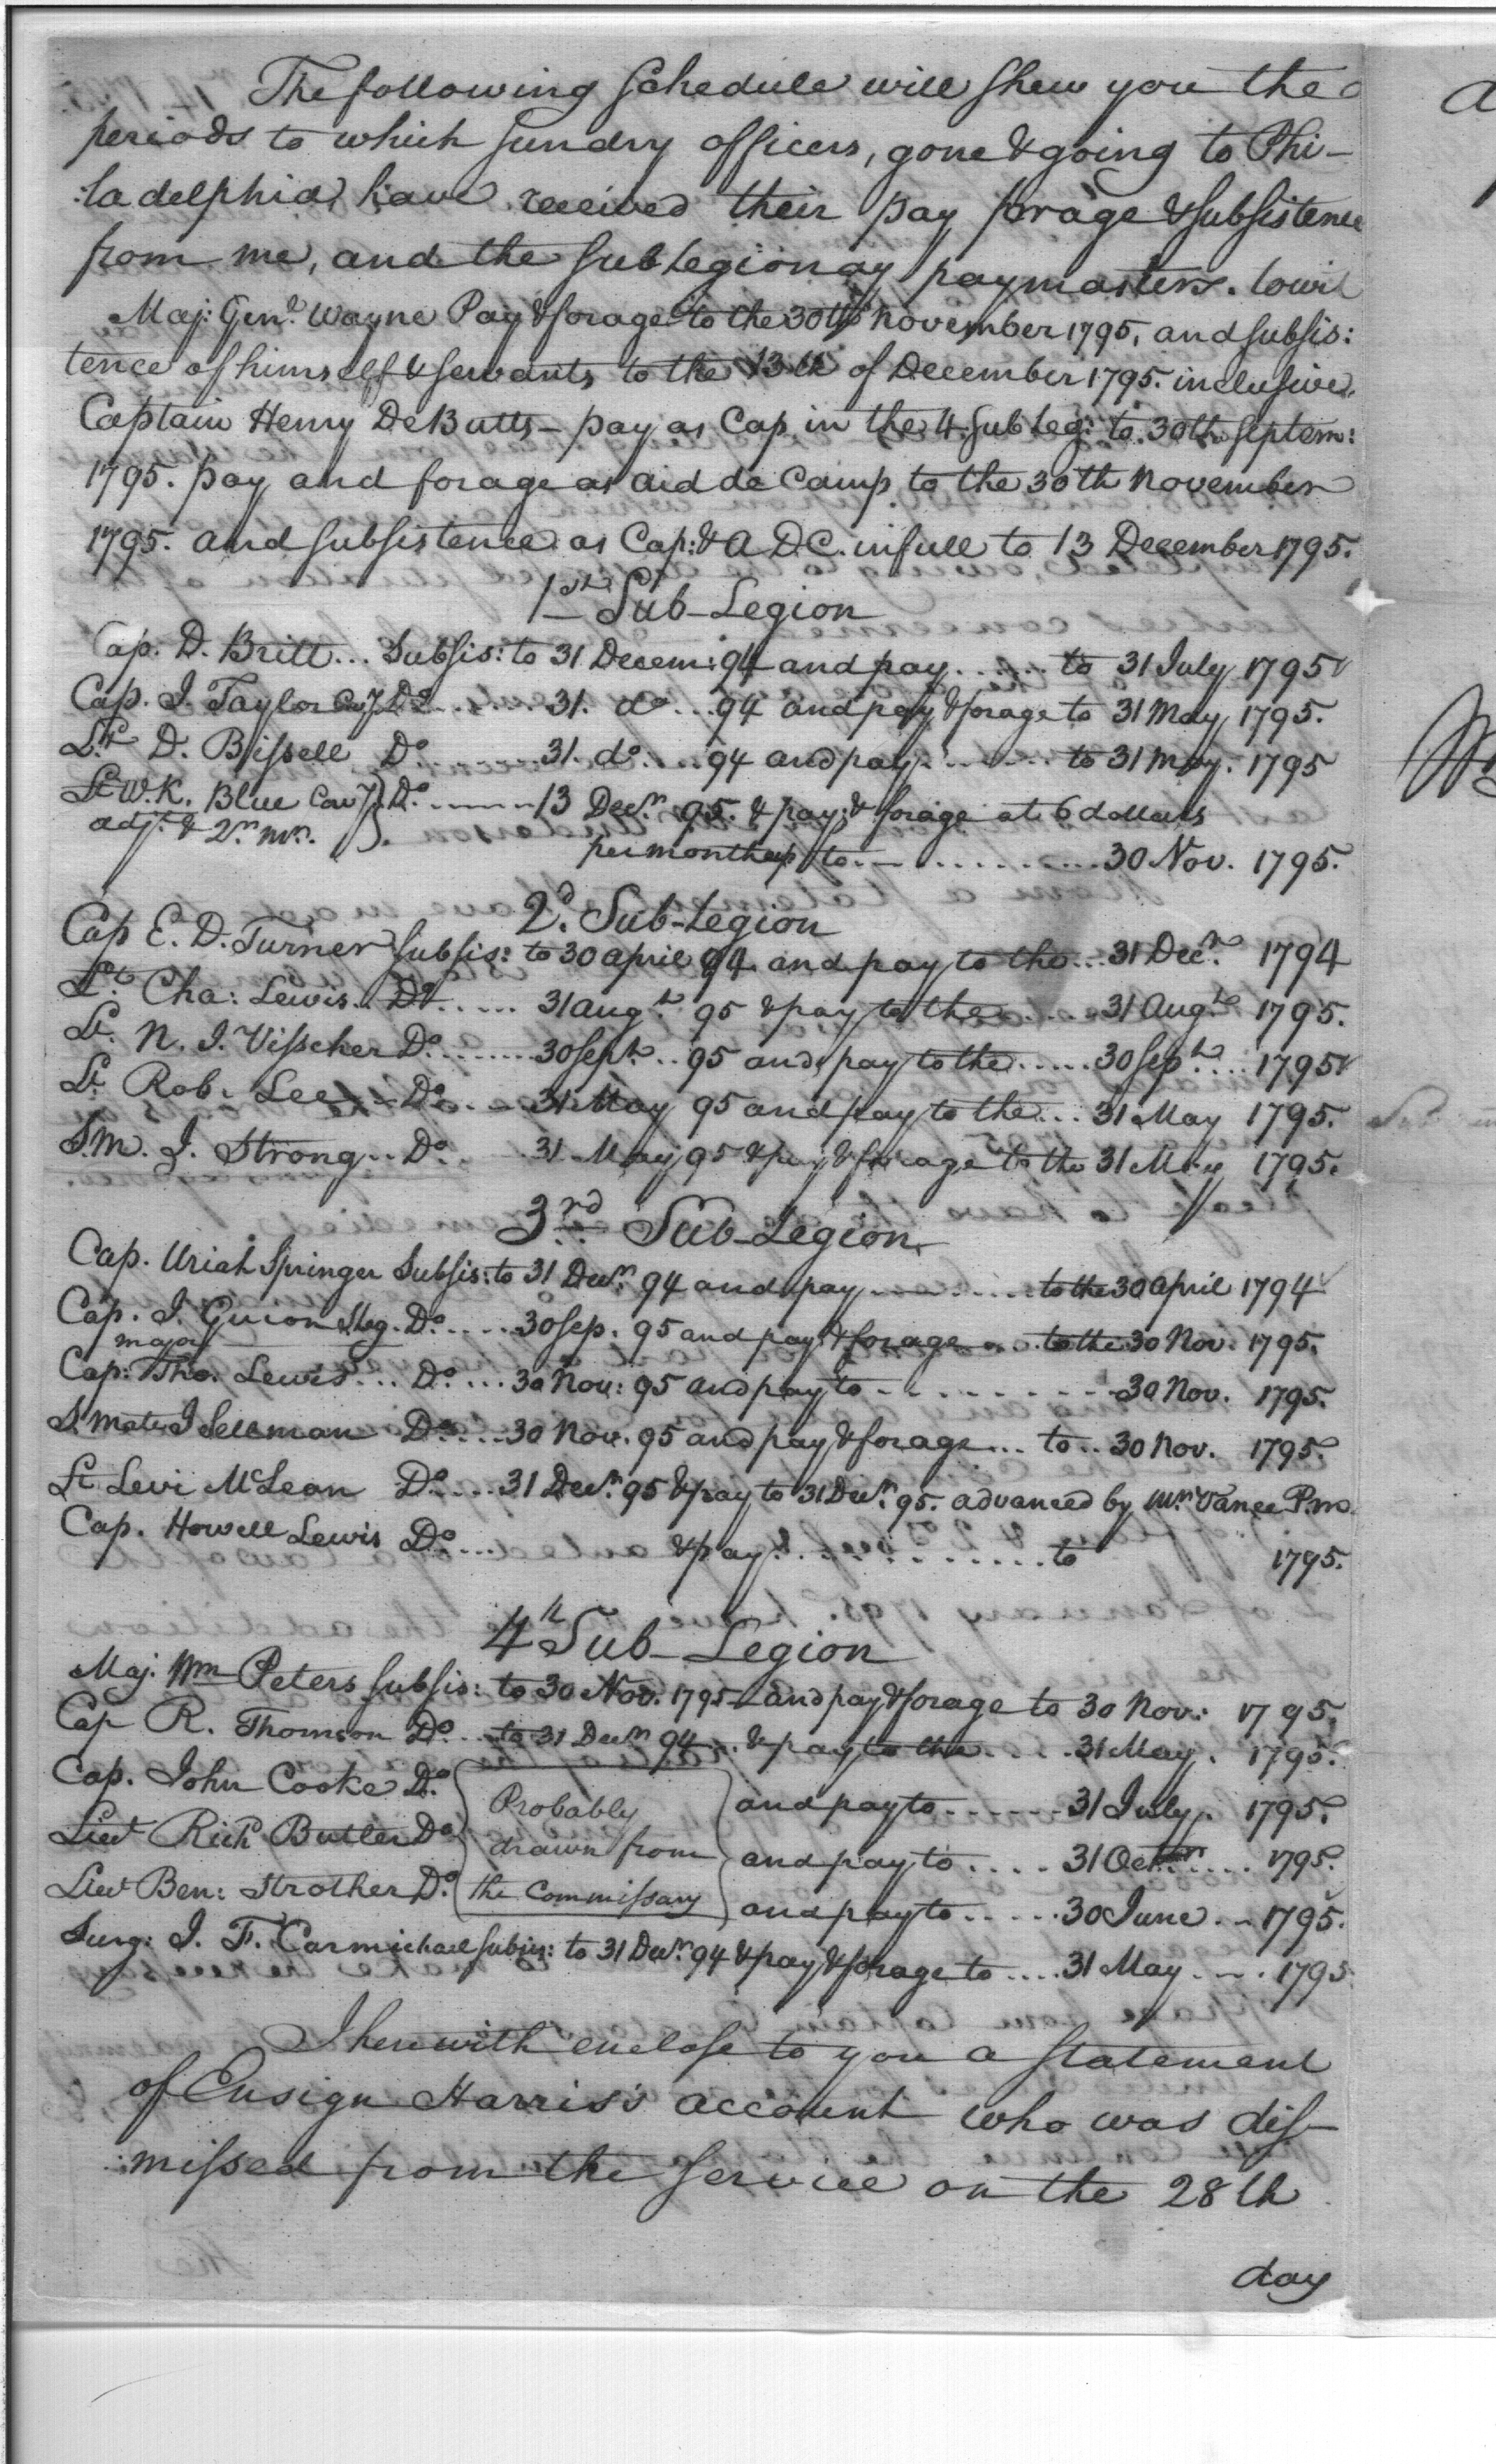 The following schedule will shew you the
periods to which sundry officers, gone & going to Phi-
:ladelphia, have received their pay forage & subsistence
from me, and the sub legionay paymasters. towit
Maj: Genl. Wayne Pay & forage to the 30th November 1795, and subsis:
tence of himself & servants to the 13th of December 1795. inclusive.
Captain Henry DeButts - pay as Cap. in the 4. Sub Leg: to 30th Septem:
1795. pay and forage as aid de Camp to the 30th November
1795. and subsistence as Cap: & A D.C. in full to 13 December 1795.
1st Sub-Legion
Cap. D. Britt... Subsis: to 31 Decem: 94 and pay...... to 31 July 1795
Cap. J. Taylor Cavy. Do...... 31. do... 94 and pay & forage to 31 May 1795.
Lt. D. Bissell Do....... 31. do... 94 and pay....... to 31 May. 1795
Lt W.K. Blue Cavy Do. ------ 13 Decr. 95. & pay & forage at 6 dollars
adjt. & Qr. mr. }. per month up to........... 30 Nov. 1795.
2d. Sub-Legion
Cap E. D. Turner Subsis: to 30 april 94. and pay to the... 31 Decr. 1794
Lt. Cha: Lewis.. Do...... 31 augt. 95 & pay to the..... 31 Augt. 1795.
Lt. N. J. Visscher Do........ 30 Sept... 95 and pay to the...... 30 Sept.... 1795
Lt. Rob. Lee - Do... - 31 May 95 and pay to the... 31 May 1795.
S.M. J. Strong.. Do. .. 31 May 95 & pay & forage to the 31 May 1795.
3rd Sub-Legion
Cap. Uriah Springer Subsis: to 31 Decr. 94 and pay......... to the 30 april 1794
Cap. J. Guion Do..... 30 Sep. 95 and pay & forage... to the 30 Nov. 1795.
major
Cap: Tho. Lewis... Do.... 30 Nov: 95 and pay to - - - - - - - - 30 Nov. 1795.
S. mate J Sellman Do.... 30 Nov. 95 and pay & forage... to.. 30 Nov. 1795.
Lt Levi McLean Do.... 31 Decr. 95 & pay to 31 Decr. 95. advanced by Mr. Vance P.m.
Cap. Howell Lewis Do.... & pay............ to 1795.
4th Sub-Legion
Maj. Wm Peters Subsis: to 30 Nov. 1795 and pay & forage to 30 Nov: 1795.
Cap R. Thomson Do... to 31 Decr. 94... & pay to the.... 31 May. 1795.
Cap. John Cooke Do. { Probably } and pay to ------ 31 July. 1795.
Lieut Richd Butler Do { drawn from } and pay to.... 31 Octr..... 1795.
Lieut Ben: Strother Do. { the Commissary } and pay to..... 30 June.. - 1795.
Surg: J. F. Carmichael subsis: to 31 Decr. 94 & pay & forage to.... 31 May.... 1795
I herewith enclose to you a statement
of Ensign Harris's account who was dis-
:missed from the service on the 28th
day